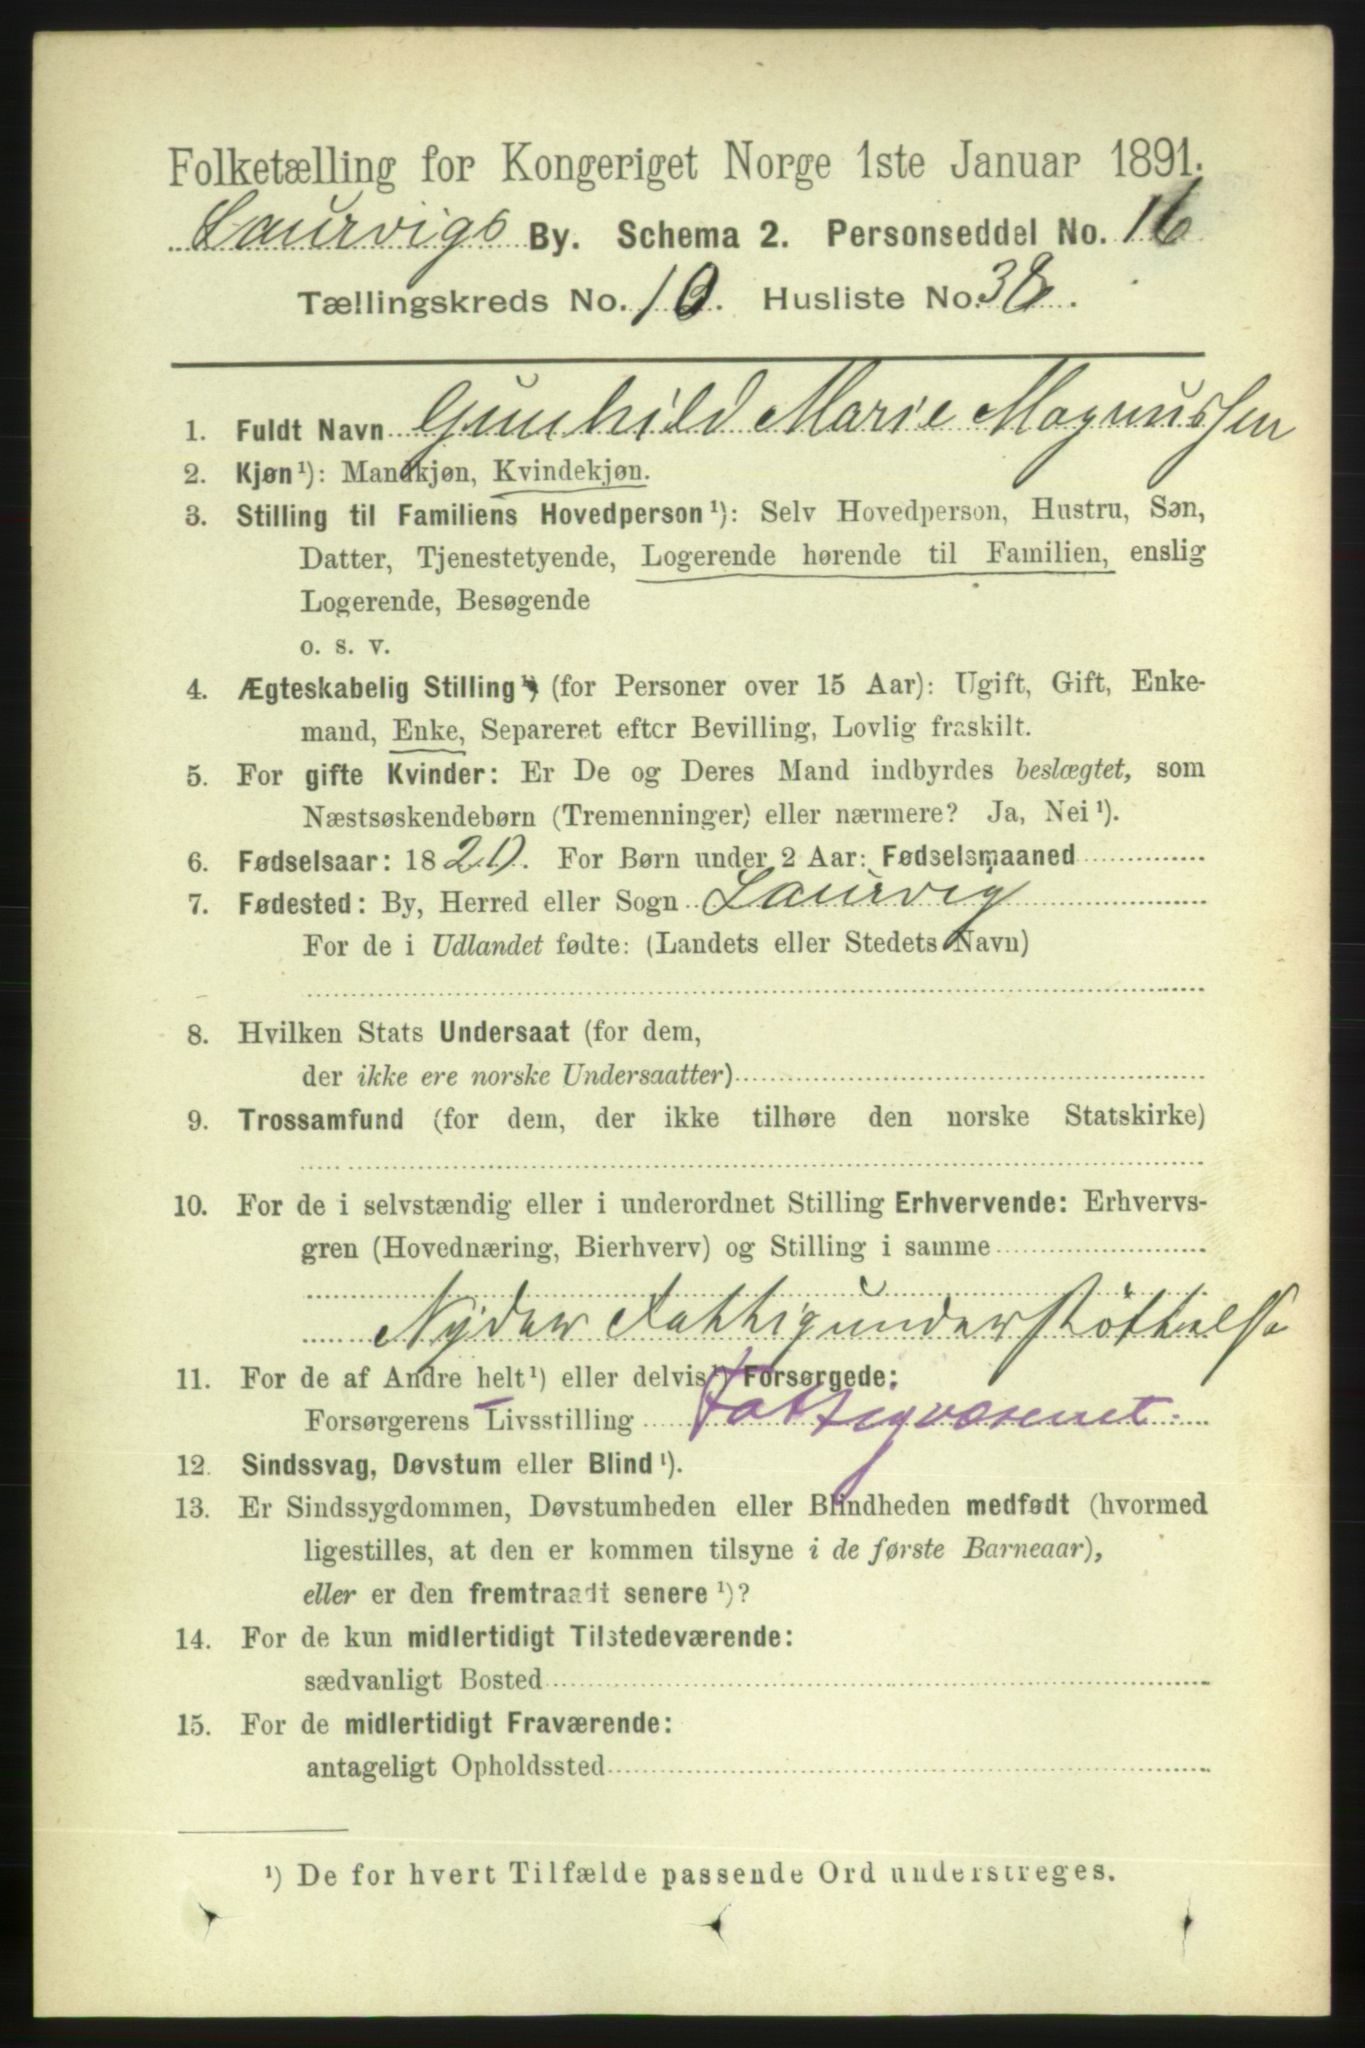 Folketælling for Kongeriget Norge 1ste Januar 1891.
Laurvigs By. Schema 2. Personseddel No. 16
Tællingskreds No. 10. Husliste No. 38.
1. Fuldt Navn Gunhild Marie Magnussen
2. Kjøn¹): Mandkjøn, Kvindekjøn.
3. Stilling til Familiens Hovedperson¹): Selv Hovedperson, Hustru, Søn,
Datter, Tjenestetyende, Logerende hørende til Familien, enslig
Logerende, Besøgende
o. s. v.
4. Ægteskabelig Stilling¹) (for Personer over 15 Aar): Ugift, Gift, Enke-
mand, Enke, Separeret efter Bevilling, Lovlig fraskilt.
5. For gifte Kvinder: Er De og Deres Mand indbyrdes beslægtet, som
Næstsøskendebørn (Tremenninger) eller nærmere? Ja, Nei¹).
6. Fødselsaar: 1820. For Børn under 2 Aar: Fødselsmaaned
7. Fødested: By, Herred eller Sogn Laurvig
For de i Udlandet fødte: (Landets eller Stedets Navn)
8. Hvilken Stats Undersaat (for dem,
der ikke ere norske Undersaatter)
9. Trossamfund (for dem, der ikke tilhøre den norske Statskirke)
10. For de i selvstændig eller i underordnet Stilling Erhvervende: Erhvervs-
gren (Hovednæring, Bierhverv) og Stilling i samme
Nyder Fattigunderstøttelse
11. For de af Andre helt¹) eller delvis¹) Forsørgede:
Forsørgerens Livsstilling Fattigvæsenet.
12. Sindssvag, Døvstum eller Blind¹).
13. Er Sindssygdommen, Døvstumheden eller Blindheden medfødt (hvormed
ligestilles, at den er kommen tilsyne i de første Barneaar),
eller er den fremtraadt senere¹)?
14. For de kun midlertidigt Tilstedeværende:
sædvanligt Bosted
15. For de midlertidigt Fraværende:
antageligt Opholdssted
¹) De for hvert Tilfælde passende Ord understreges.